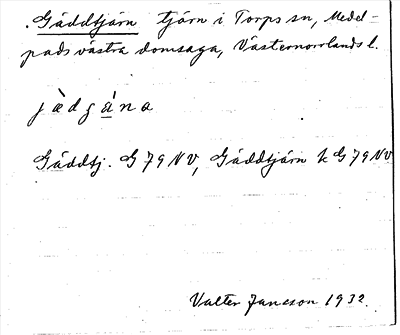 Gäddtjärn tjärn i Torps sn, Medel-
pads västra domsaga, Västernorrlands l.
jèdgána
Gäddtj. G 79 NV, Gäddtjärn k G 79 NV
Valter Jansson 1932.